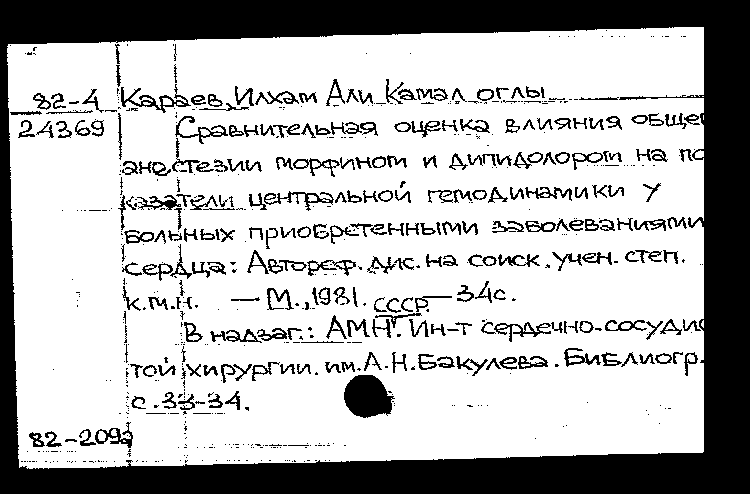 82-4 Караев, Илхам Али Камал оглы
24369 Сравнительная оценка влияния общей
анестезии морфином и дипидолором на по
казатели центральной гемодинамики у
больных приобретенными заболеваниями
сердца: Автореф. дис. на соиск. учен. степ.
к.м.н. — М., 1981. — 34с.
В надзаг.: АМН СССР. Ин-т сердечно-сосудис
той хирургии. им. А.Н.Бакулева. Библиогр.
с. 33-34.
82-209